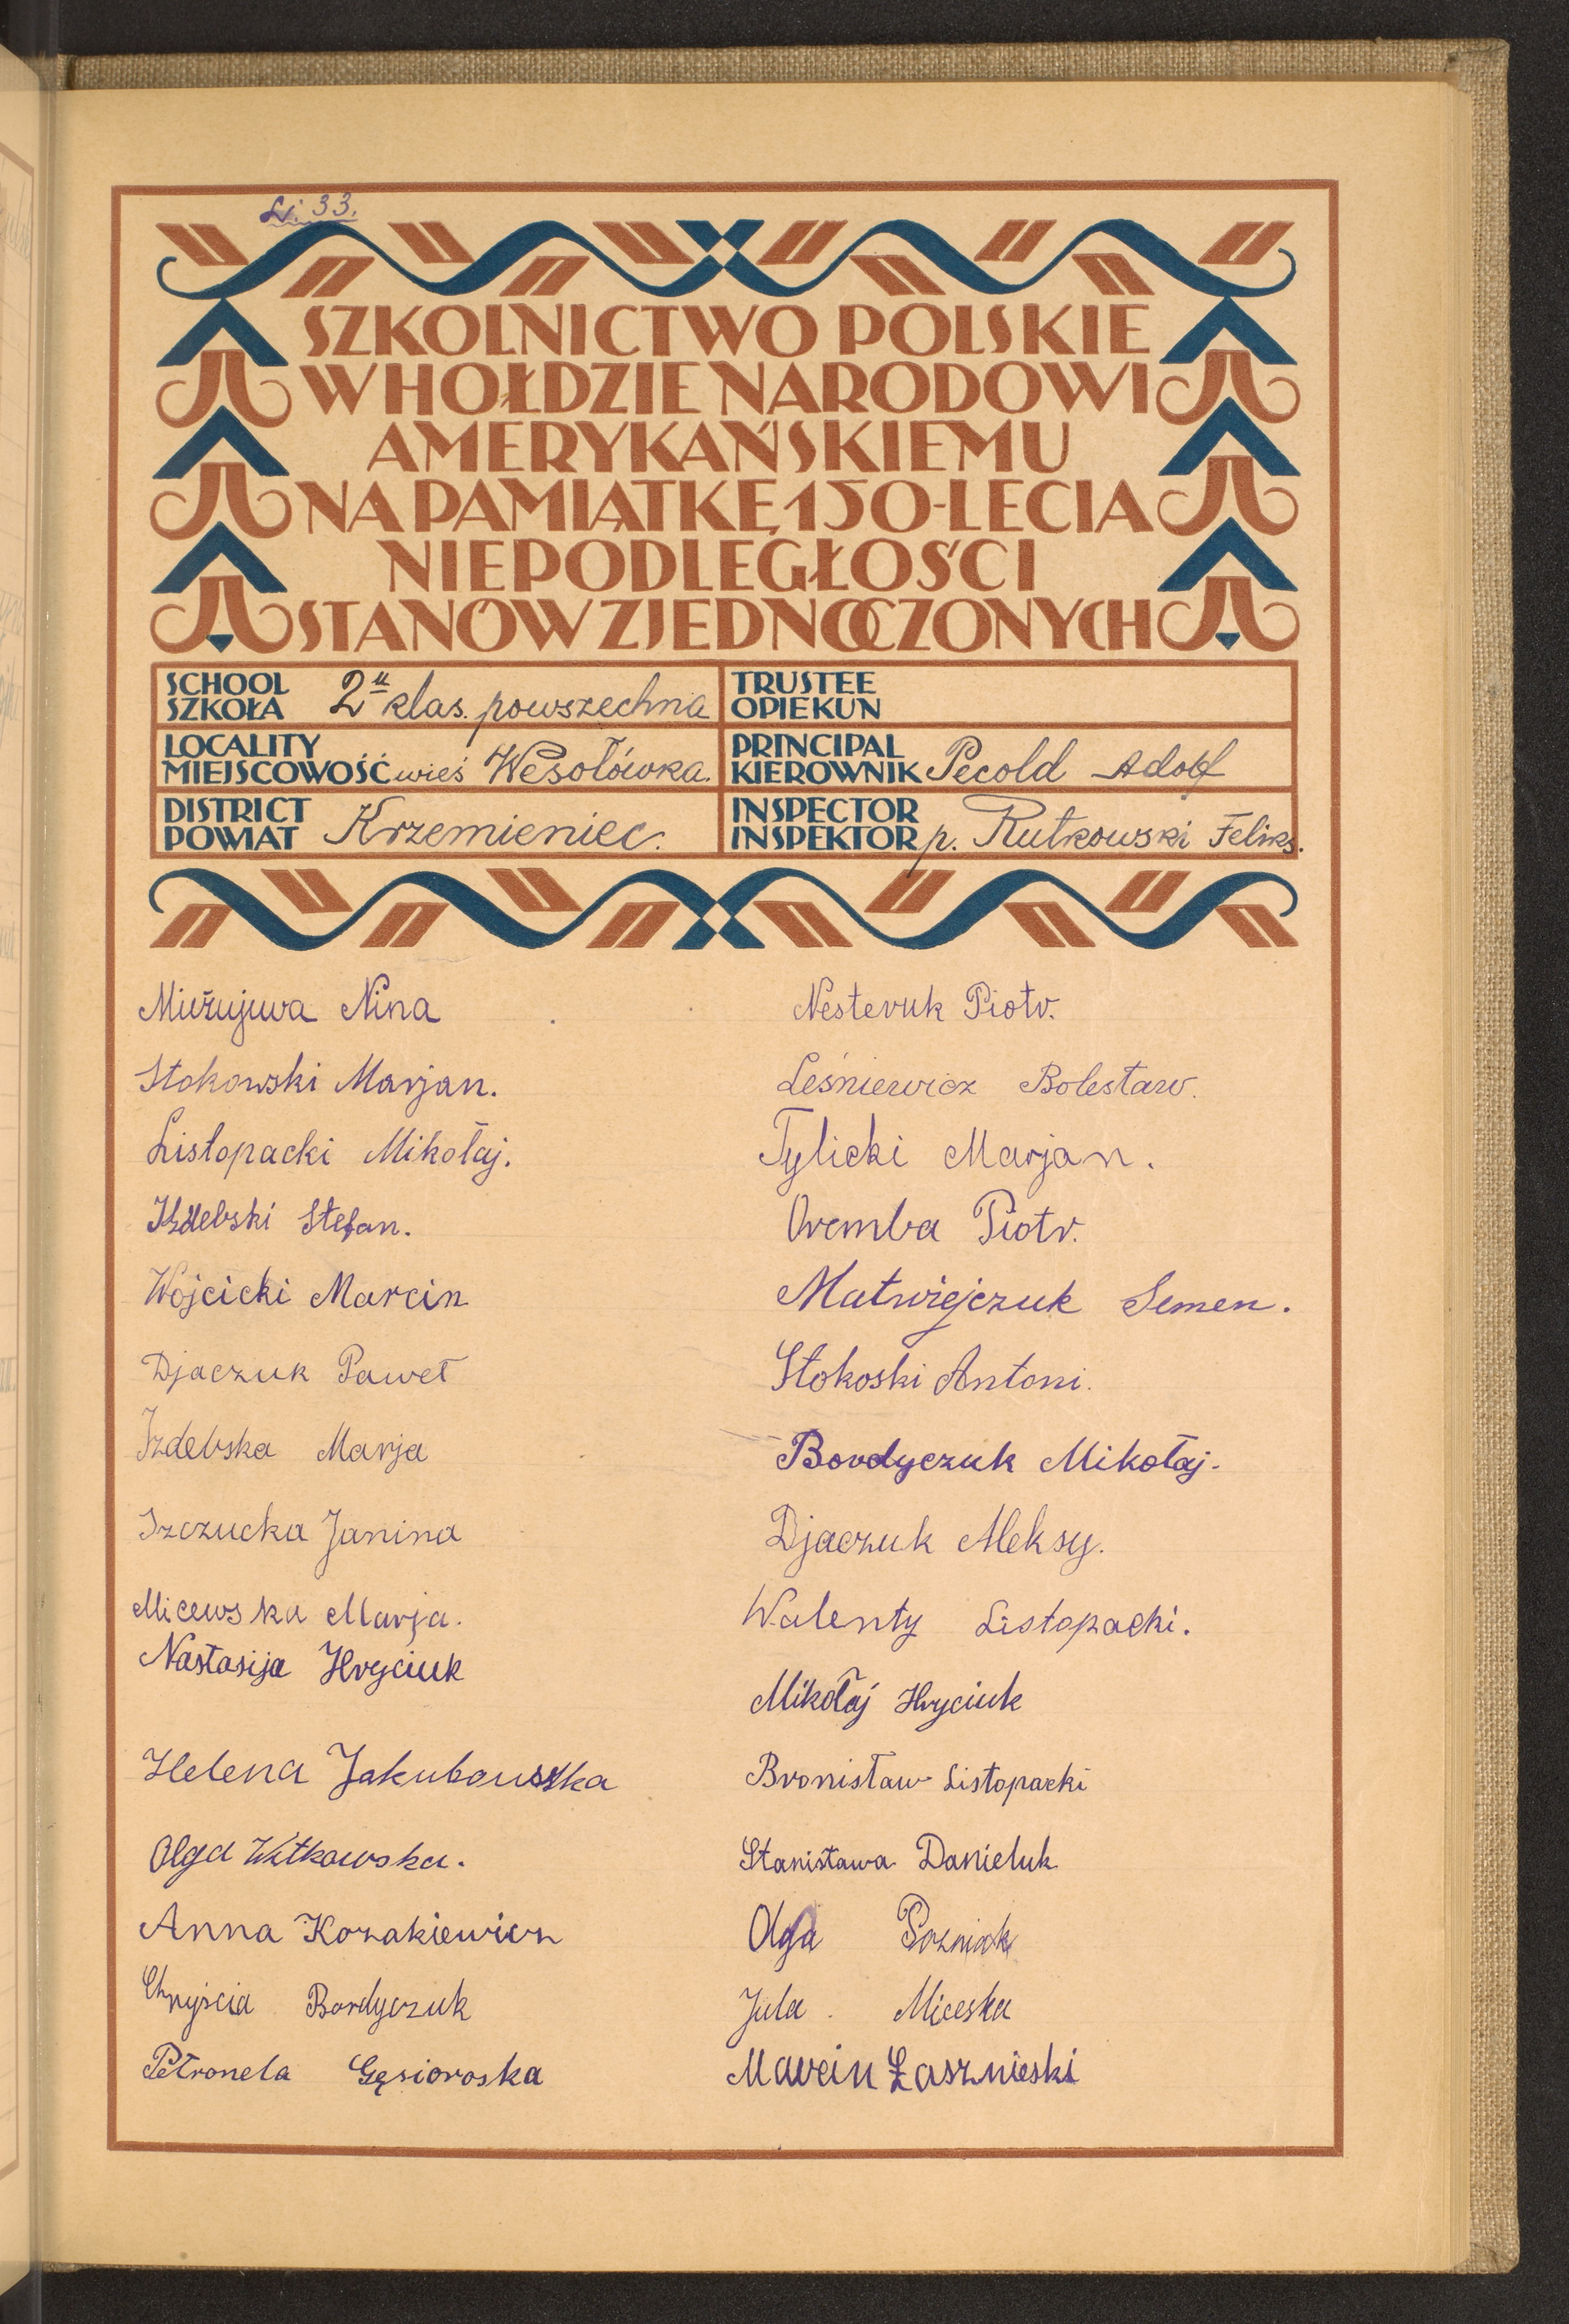 Li. 33.
SZKOLNICTWO POLSKIE
W HOŁDZIE NARODOWI
AMERYKAŃSKIEMU
NA PAMIĄTKĘ 150-LECIA
NIEPODLEGŁOŚCI
STANÓW ZJEDNOCZONYCH
SCHOOL
SZKOŁA 2 klas. powszechna
TRUSTEE
OPIEKUN
LOCALITY
MIEJSCOWOŚĆ wieś Wesołówka.
PRINCIPAL
KIEROWNIK Pecold Adolf
DISTRICT
POWIAT Krzemieniec.
INSPECTOR
INSPEKTOR p. Rutkowski Feliks.
Nina
Stokowski Marjan.
Listopacki Mikołaj.
Izdebski Stefan.
Wojcicki Marcin
Djaczuk Paweł
Izdebska Marja
Szczucka Janina
Micewska Marja.
Nastasija Hryciuk
Helena Jakubowska
Olga Witkowska.
Anna Kozakiewicz
Chryścia Bordyczuk
Petronela Gęsioroska
Nesteruk Piotr.
Leśniewicz Bolesław.
Tylicki Marjan.
Oremba Piotr.
Matwiejczuk Semen.
Stokoski Antoni.
Bordyczuk Mikołaj.
Djaczuk Aleksy.
Walenty Listopacki.
Mikołaj Hryciuk
Bronisław Listopacki
Stanisława Danieluk
Olga Pozniak
Jula Miceska
Marcin Łasznieski